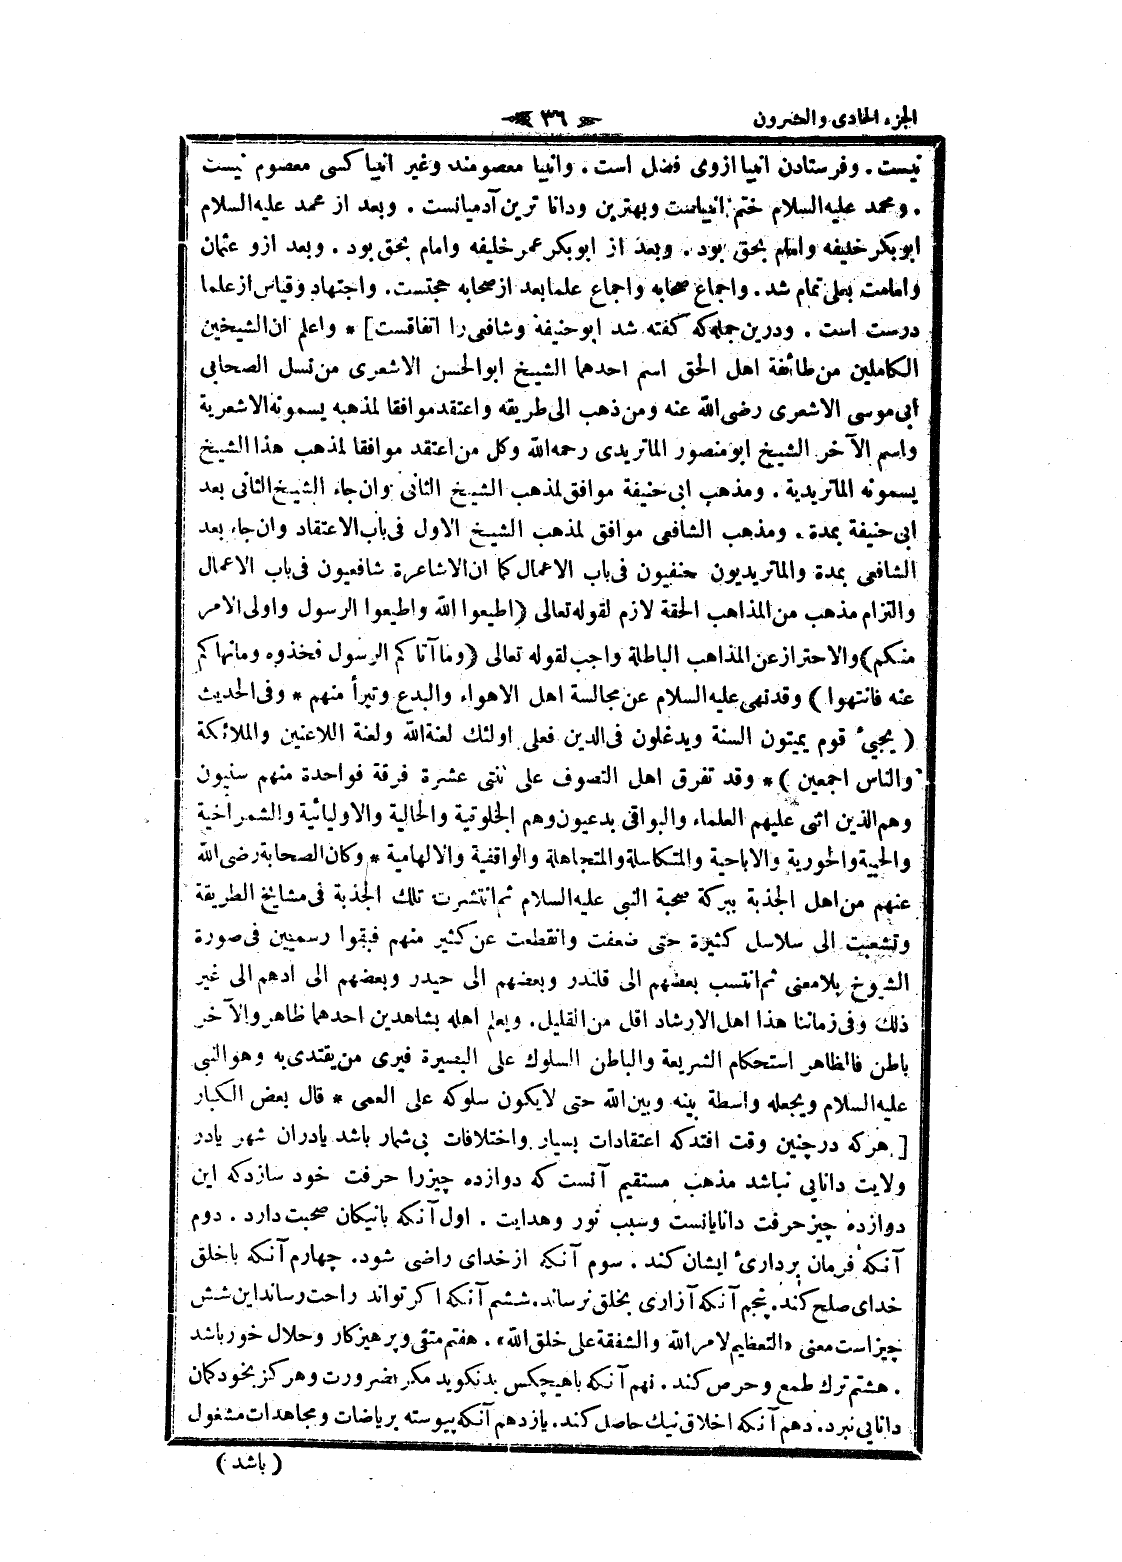 الجزء الحادى والعشرون
﴿ ٣٦ ﴾
نيست . وفرستادن انبيا ازوى فضل است . وانبيا معصومند وغير انبيا كسى معصوم نيست
. ومحمد عليه‌السلام ختم انبياست وبهترين ودانا ترين آدميانست . وبعد از محمد عليه‌السلام
ابوبكر خليفه وامام بحق بود . وبعد از ابوبكر عمر خليفه وامام بحق بود . وبعد ازو عثمان
وامامت بعلى تمام شد . واجماع صحابه واجماع علما بعد از صحابه حجتست . واجتهاد وقياس از علما
درست است . ودرين جمله كه كفته شد ابو حنيفه وشافعى را اتفاقست ] * واعلم ان الشيخين
الكاملين من طائفة اهل الحق اسم احدهما الشيخ ابوالحسن الاشعرى من نسل الصحابى
ابى موسى الاشعرى رضى الله عنه ومن ذهب الى طريقه واعتقد موافقا لمذهبه يسمونه الاشعرية
واسم الآخر الشيخ ابو منصور الماتريدى رحمه الله وكل من اعتقد موافقا لمذهب هذا الشيخ
يسمونه الماتريدية . ومذهب ابى حنيفة موافق لمذهب الشيخ الثانى وان جاء الشيخ الثانى بعد
ابى حنيفة بمدة . ومذهب الشافعى موافق لمذهب الشيخ الاول فى باب الاعتقاد وان جاء بعد
الشافعى بمدة والماتريديون حنفيون فى باب الاعمال كما ان الاشاعرة شافعيون فى باب الاعمال
والتزام مذهب من المذاهب الحقة لازم لقوله تعالى ( اطيعوا الله واطيعوا الرسول واولى الامر
منكم ) والاحتراز عن المذاهب الباطلة واجب لقوله تعالى ( وما آتاكم الرسول فخذوه ومانهاكم
عنه فانتهوا ) وقد نهى عليه السلام عن مجالسة اهل الاهواء والبدع وتبرأ منهم * وفى الحديث
( يجيئ قوم يميتون السنة ويدغلون فى الدين فعلى اولئك لعنة الله ولعنة اللاعنين والملائكة
والناس اجمعين ) * وقد تفرق اهل التصوف على ثنتى عشرة فرقة فواحدة منهم سنيون
وهم الذين اثنى عليهم العلماء والبواقى بدعيون وهم الخلوتية والحالية والاوليائية والشمراخية
والحبية والحورية والاباحية والمتكاسلة والمتجاهلة والواقفية والالهامية * وكان الصحابة رضى الله
عنهم من اهل الجذبة ببركة صحبة النبى عليه السلام ثم انتشرت تلك الجذبة فى مشايخ الطريقة
وتشعبت الى سلاسل كثيرة حتى ضعفت وانقطعت عن كثير منهم فبقوا رسميين فى صورة
الشيوخ بلا معنى ثم انتسب بعضهم الى قلندر وبعضهم الى حيدر وبعضهم الى ادهم الى غير
ذلك وفى زماننا هذا اهل الارشاد اقل من القليل . ويعلم اهله بشاهدين احدهما ظاهر والآخر
باطن فالظاهر استحكام الشريعة والباطن السلوك على البصيرة فيرى من يقتدى به وهو النبى
عليه السلام ويجعله واسطة بينه وبين الله حتى لايكون سلوكه على العمى * قال بعض الكبار
[ هركه درچنين وقت افتد كه اعتقادات بسيار واختلافات بى شمار باشد يا دران شهر يا در
ولايت دانايى نباشد مذهب مستقيم آنست كه دوازده چيزرا حرفت خود سازد كه اين
دوازده چيز حرفت دانايانست وسبب نور وهدايت . اول آنكه بانيكان صحبت دارد . دوم
آنكه فرمان بردارىء ايشان كند . سوم آنكه از خداى راضى شود . چهارم آنكه باخلق
خداى صلح كند . پنجم آنكه آزارى بخلق نرساند . ششم آنكه اكر تواند راحت رساند اين شش
چيزاست معنى «التعظيم لامر الله والشفقة على خلق الله» . هفتم متقى وپرهيزكار وحلال خور باشد
. هشتم ترك طمع وحرص كند . نهم آنكه باهيچكس بدنكويد مكر بضرورت وهركز بخود كمان
دانايى نبرد . دهم آنكه اخلاق نيك حاصل كند . يازدهم آنكه پيوسته برياضات ومجاهدات مشغول
( باشد )